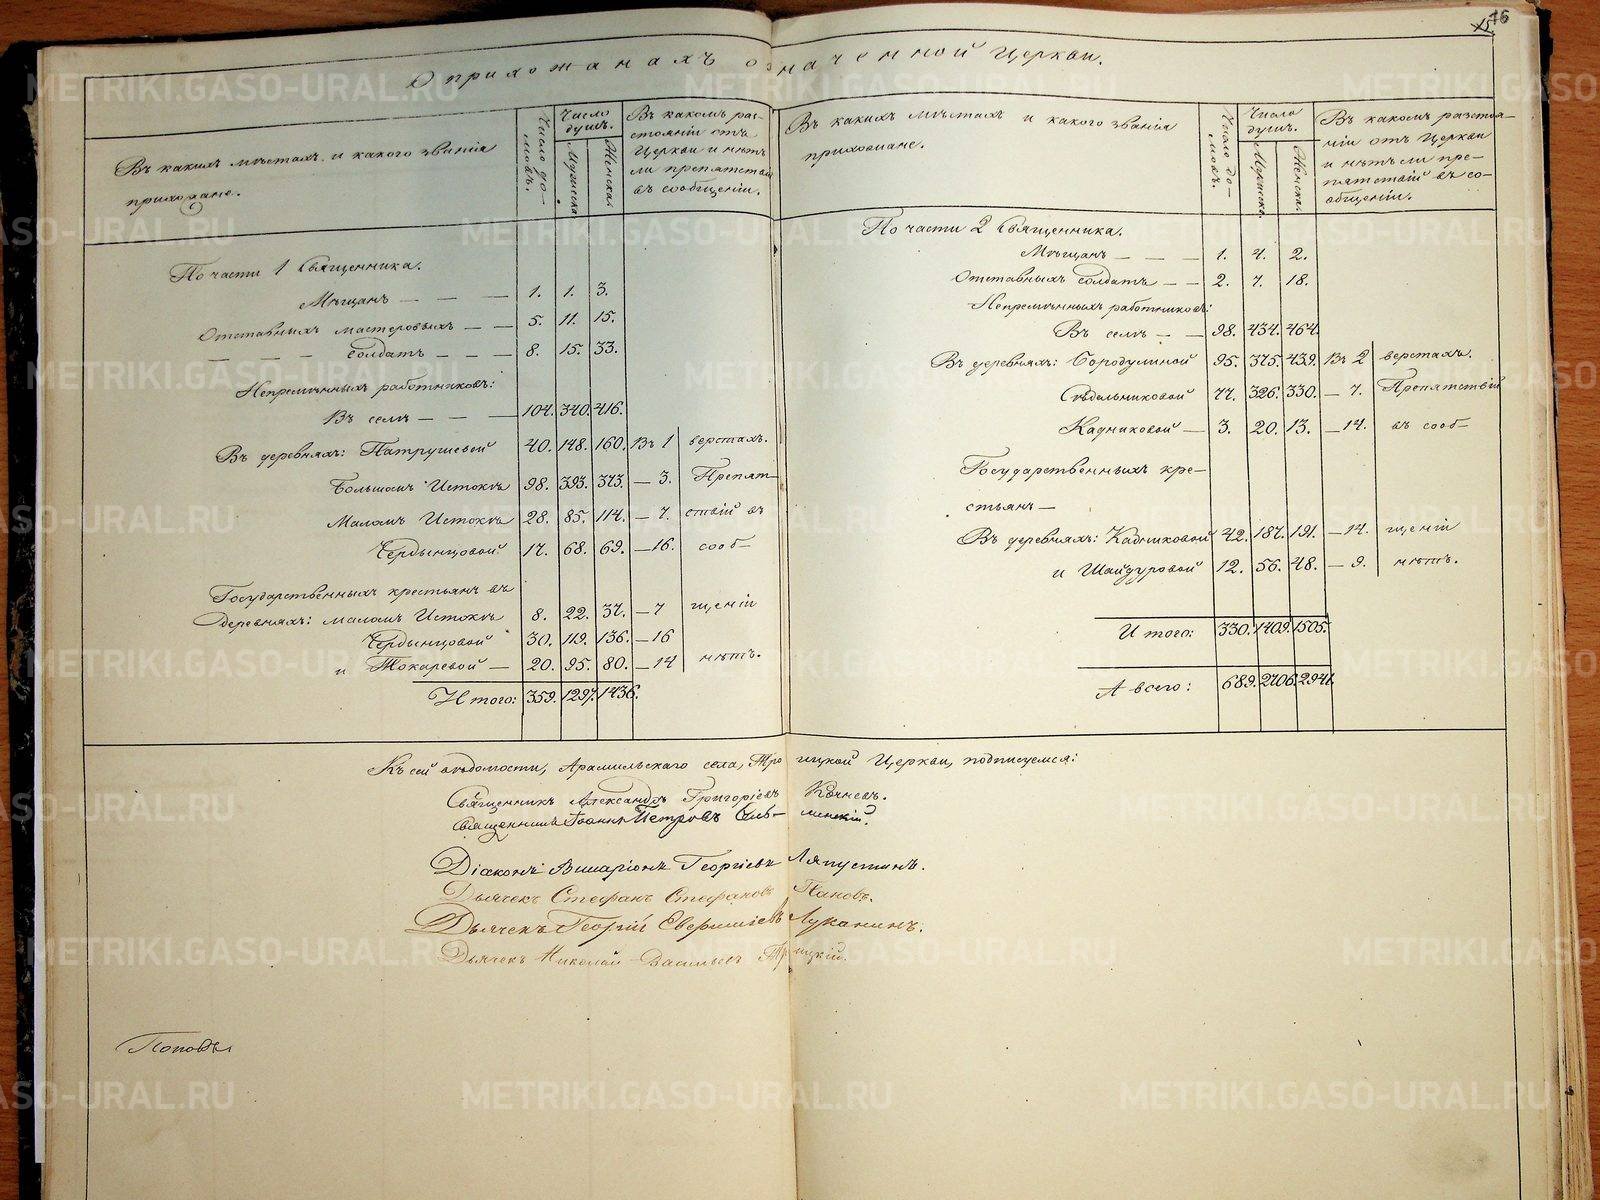 15 16
О прихожанахъ означенной Церкви.
Въ какихъ мѣстахъ и какого званія
прихожане.
Число до-
мовъ.
Число
душъ.
Мужска.
Женска.
Въ какомъ раз-
стояніи отъ
Церкви и нѣтъ
ли препятствій
въ сообщеніи.
По части 1 Священника.
Мѣщанъ — — — 1. 1. 3.
Отставныхъ мастеровыхъ — — 5. 11. 15.
— — — солдатъ — — — 8. 15. 33.
Непремѣнныхъ работниковъ:
Въ селѣ — — — 104. 340. 416.
Въ деревняхъ: Патрушевой 40. 148. 160. Въ 1 верстахъ.
Большомъ Истокѣ 98. 393. 373. — 3. Препят-
Маломъ Истокѣ 28. 85. 114. — 7. ствій въ
Чердынцовой 17. 68. 69. — 16. сооб-
Государственныхъ крестьянъ въ
деревняхъ: маломъ Истокѣ 8. 22. 37. — 7 щеніи
Чердынцовой 30. 119. 136. — 16
и Токаревой — 20. 95. 80. — 14 нѣтъ.
Итого: 359. 1297. 1436.
Въ какихъ мѣстахъ и какого званія
прихожане.
Число до-
мовъ.
Число
душъ.
Мужска.
Женска.
Въ какомъ разстоя-
ніи отъ Церкви
и нѣтъ ли пре-
пятствій въ со-
общеніи.
По части 2 Священника.
Мѣщанъ — — — 1. 4. 2.
Отставныхъ солдатъ — — 2. 7. 18.
Непремѣнныхъ работниковъ:
Въ селѣ — — 98. 434. 464.
Въ деревняхъ: Бородулиной 95. 375. 439. Въ 2 верстахъ.
Сѣдельниковой 77. 326. 330. — 7. Препятствій
Кадниковой — 3. 20. 13. — 14. въ сооб-
Государственныхъ кре-
стьянъ —
Въ деревняхъ: Кадниковой 42. 187. 191. — 14. щеніи
и Шайдуровой 12. 56. 48. — 9. нѣтъ.
Итого: 330. 1409. 1505.
А всего: 689. 2706. 2941.
Къ сей вѣдомости, Арамильскаго села, Троицкой Церкви, подписуемся:
Священникъ Александръ Григоріевъ
Священникъ Іоаннъ Петровъ
Діаконъ Виссаріонъ Георгіевъ Ляпустинъ.
Дьячекъ Стефанъ Стефановъ Пановъ.
Дьячекъ Георгій Луканинъ.
Дьячекъ Николай Васильевъ Троицкій.
Поповъ
METRIKI.GASO-URAL.RU